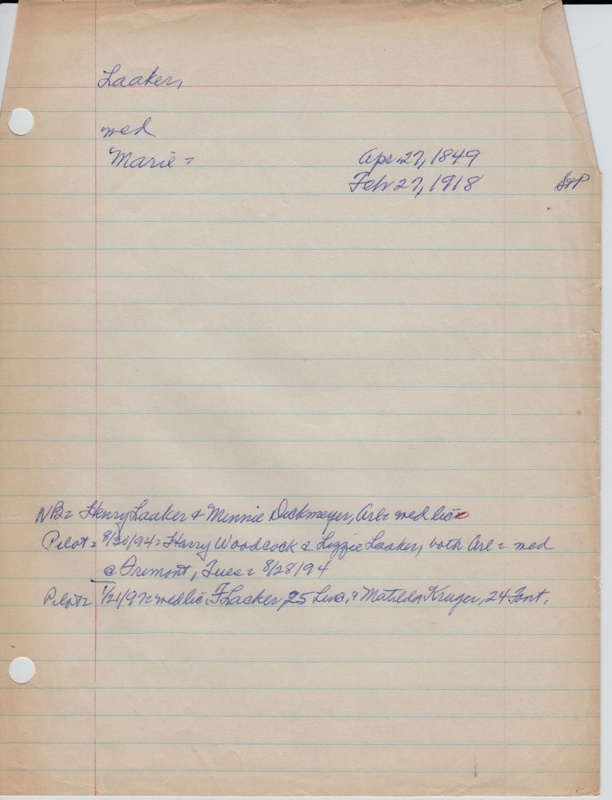 Laaker,
wed
Marie = Apr 27, 1849
Feb 27, 1918 StP
NB= Henry Laaker & Minnie Dickmeyer, Arl= wed lic
Pilot= 8/30/94= Harry Woodcock & Lizzie Laaker, both Arl = wed
@ Fremont, Tues= 8/28/94
Pilot= 1/21/97= wed lic F Laaker, 25 & Matilda Kruger, 24 Font.